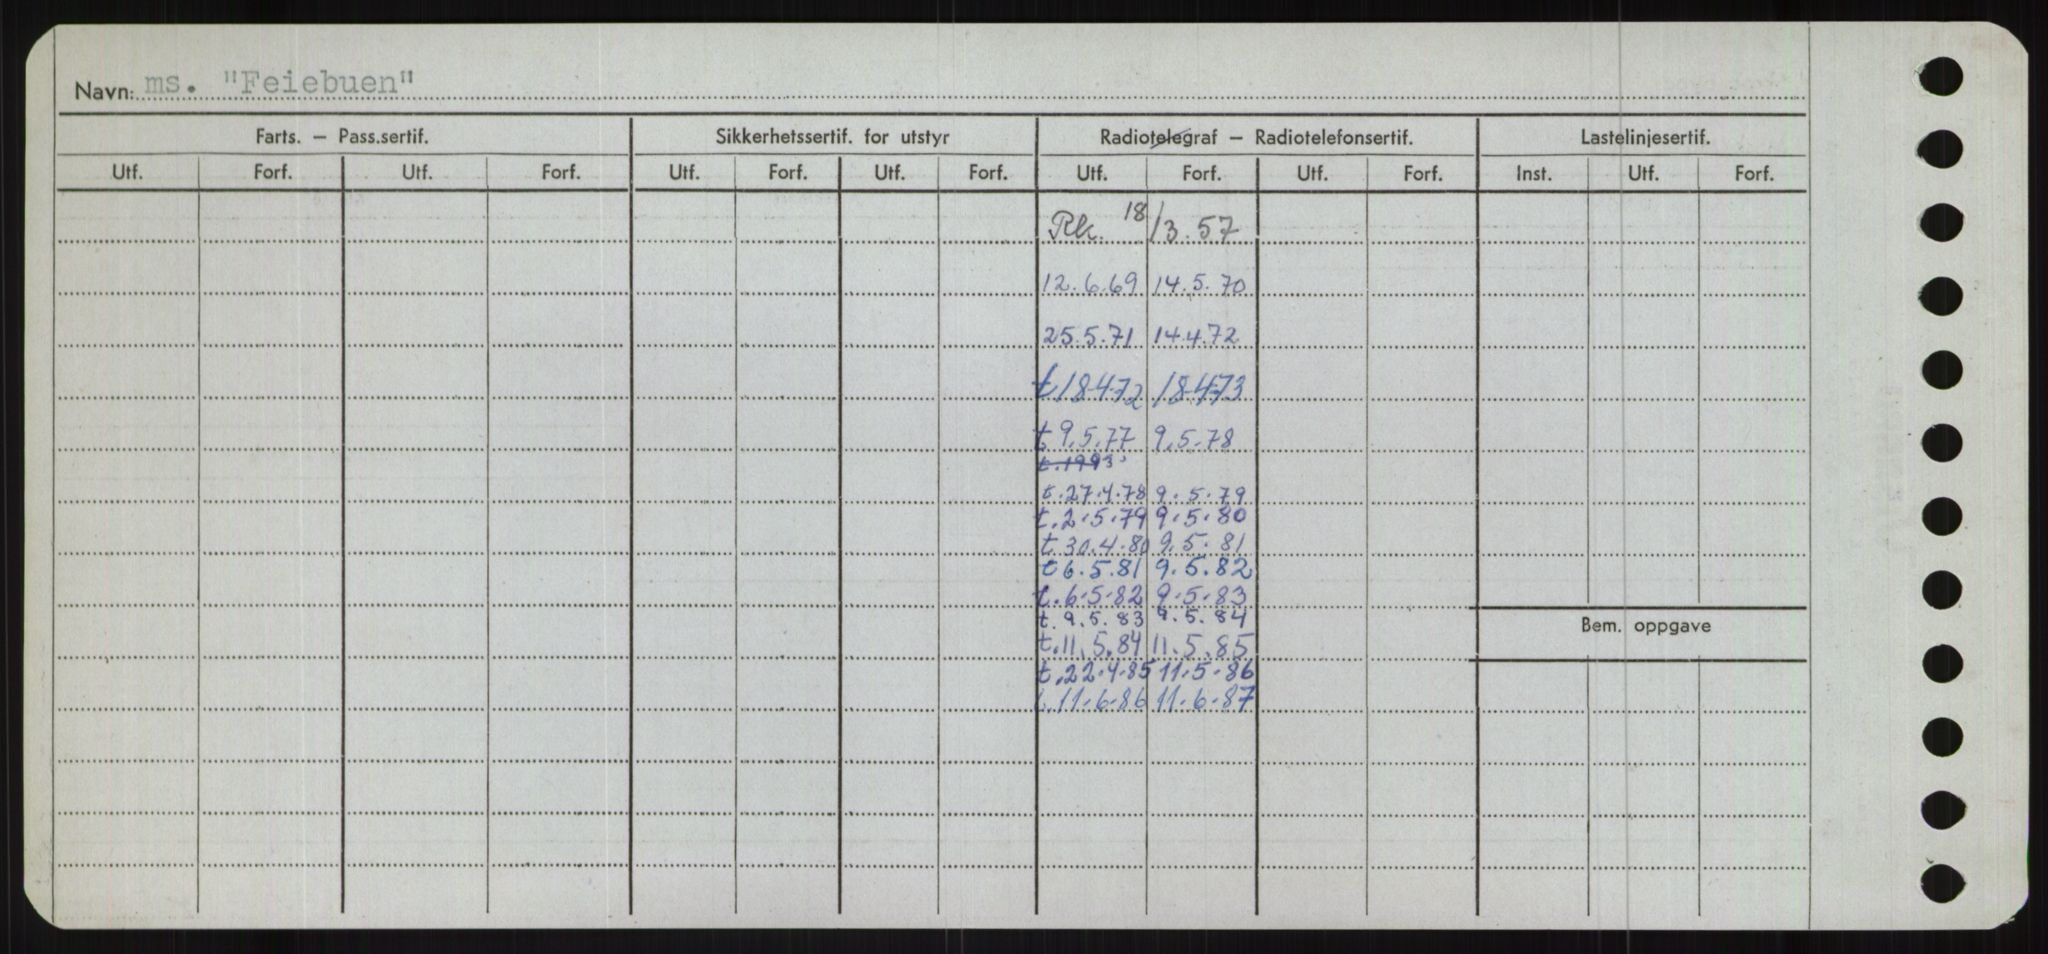 Navn: ms. "Feiebuen"
Farts. — Pass.sertif. Sikkerhetssertif. for utstyr Radiotelegraf — Radiotelefonsertif. Lastelinjesertif.
Utf. Forf. Utf. Forf. Utf. Forf. Utf. Forf. Utf. Forf. Utf. Forf. Inst. Utf. Forf.
Rk. 18/3.57
12.6.69 14.5.70
25.5.71 14.4.72
t 18.4.72 18.4.73
t. 9.5.77 9.5.78
t. 1993
t. 27.4.78 9.5.79
t. 2.5.79 9.5.80
t 30.4.80 9.5.81
t 6.5.81 9.5.82
t. 6.5.82 9.5.83
t. 9.5.83 9.5.84
Bem. oppgave
t. 11.5.84 11.5.85
t. 22.4.85 11.5.86
t. 11.6.86 11.6.87